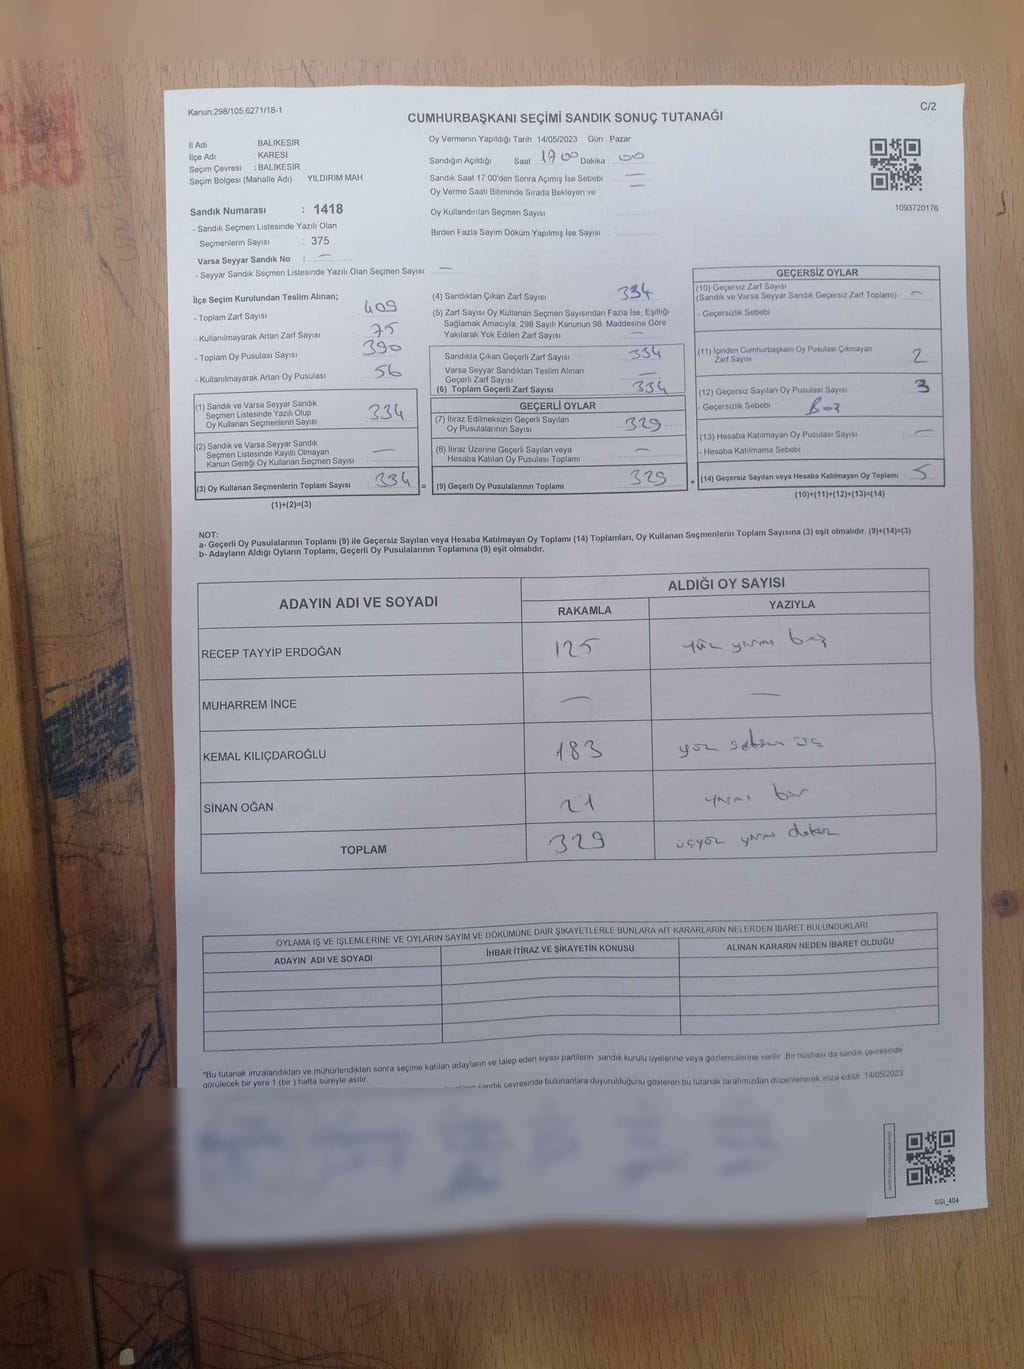 Kanun,298/105,6271/18-1
C/2
CUMHURBAŞKANI SEÇİMİ SANDIK SONUÇ TUTANAĞI
İl Adı BALIKESİR
İlçe Adı KARESİ
Seçim Çevresi : BALIKESİR
Seçim Bölgesi (Mahalle Adı) YILDIRIM MAH.
Sandık Numarası : 1418
- Sandık Seçmen Listesinde Yazılı Olan
Seçmenlerin Sayısı : 375
Varsa Seyyar Sandık No : —
- Seyyar Sandık Seçmen Listesinde Yazılı Olan Seçmen Sayısı —
Oy Vermenin Yapıldığı Tarih : 14/05/2023 Gün : Pazar
Sandığın Açıldığı Saat 17 00 Dakika 00
Sandık Saat 17:00'den Sonra Açılmış İse Sebebi —
Oy Verme Saati Bitiminde Sırada Bekleyen ve —
Oy Kullandırılan Seçmen Sayısı
Birden Fazla Sayım Döküm Yapılmış İse Sayısı
1093720176
İlçe Seçim Kurulundan Teslim Alınan;
- Toplam Zarf Sayısı 409
- Kullanılmayarak Artan Zarf Sayısı 75
- Toplam Oy Pusulası Sayısı 390
- Kullanılmayarak Artan Oy Pusulası 56
(1) Sandık ve Varsa Seyyar Sandık
Seçmen Listesinde Yazılı Olup
Oy Kullanan Seçmenlerin Sayısı 334
(2) Sandık ve Varsa Seyyar Sandık
Seçmen Listesinde Kayıtlı Olmayan
Kanun Gereği Oy Kullanan Seçmen Sayısı —
(3) Oy Kullanan Seçmenlerin Toplam Sayısı 334 =
(1)+(2)=(3)
(4) Sandıktan Çıkan Zarf Sayısı 334
(5) Zarf Sayısı Oy Kullanan Seçmen Sayısından Fazla İse, Eşitliği
Sağlamak Amacıyla, 298 Sayılı Kanunun 98. Maddesine Göre
Yakılarak Yok Edilen Zarf Sayısı —
Sandıkta Çıkan Geçerli Zarf Sayısı 334
Varsa Seyyar Sandıktan Teslim Alınan
Geçerli Zarf Sayısı —
(6) Toplam Geçerli Zarf Sayısı 334
GEÇERLİ OYLAR
(7) İtiraz Edilmeksizin Geçerli Sayılan
Oy Pusulalarının Sayısı 329
(8) İtiraz Üzerine Geçerli Sayılan veya
Hesaba Katılan Oy Pusulası Toplamı —
(9) Geçerli Oy Pusulalarının Toplamı 329 +
GEÇERSİZ OYLAR
(10) Geçersiz Zarf Sayısı
(Sandık ve Varsa Seyyar Sandık Geçersiz Zarf Toplamı) : —
- Geçersizlik Sebebi
(11) İçinden Cumhurbaşkanı Oy Pusulası Çıkmayan
Zarf Sayısı 2
(12) Geçersiz Sayılan Oy Pusulası Sayısı 3
- Geçersizlik Sebebi : Boş
(13) Hesaba Katılmayan Oy Pusulası Sayısı —
- Hesaba Katılmama Sebebi
(14) Geçersiz Sayılan veya Hesaba Katılmayan Oy Toplamı 5
(10)+(11)+(12)+(13)=(14)
NOT:
a- Geçerli Oy Pusulalarının Toplamı (9) ile Geçersiz Sayılan veya Hesaba Katılmayan Oy Toplamı (14) Toplamları, Oy Kullanan Seçmenlerin Toplam Sayısına (3) eşit olmalıdır. (9)+(14)=(3)
b- Adayların Aldığı Oyların Toplamı, Geçerli Oy Pusulalarının Toplamına (9) eşit olmalıdır.
ADAYIN ADI VE SOYADI
ALDIĞI OY SAYISI
RAKAMLA YAZIYLA
RECEP TAYYİP ERDOĞAN 125 yüz yirmi beş
MUHARREM İNCE — —
KEMAL KILIÇDAROĞLU 183 yüz seksen üç
SİNAN OĞAN 21 yirmi bir
TOPLAM 329 üçyüz yirmi dokuz
OYLAMA İŞ VE İŞLEMLERİNE VE OYLARIN SAYIM VE DÖKÜMÜNE DAİR ŞİKAYETLERLE BUNLARA AİT KARARLARIN NELERDEN İBARET BULUNDUKLARI
ADAYIN ADI VE SOYADI İHBAR İTİRAZ VE ŞİKAYETİN KONUSU ALINAN KARARIN NEDEN İBARET OLDUĞU
*Bu tutanak imzalandıktan ve mühürlendikten sonra seçime katılan adayların ve talep eden siyasi partilerin sandık kurulu üyelerine veya gözlemcilerine verilir. Bir nüshası da sandık çevresinde
görülecek bir yere 1 (bir) hafta süreyle asılır.
sandık çevresinde bulunanlara duyurulduğunu gösteren bu tutanak tarafımızdan düzenlenerek imza edildi. 14/05/2023
SSI_404